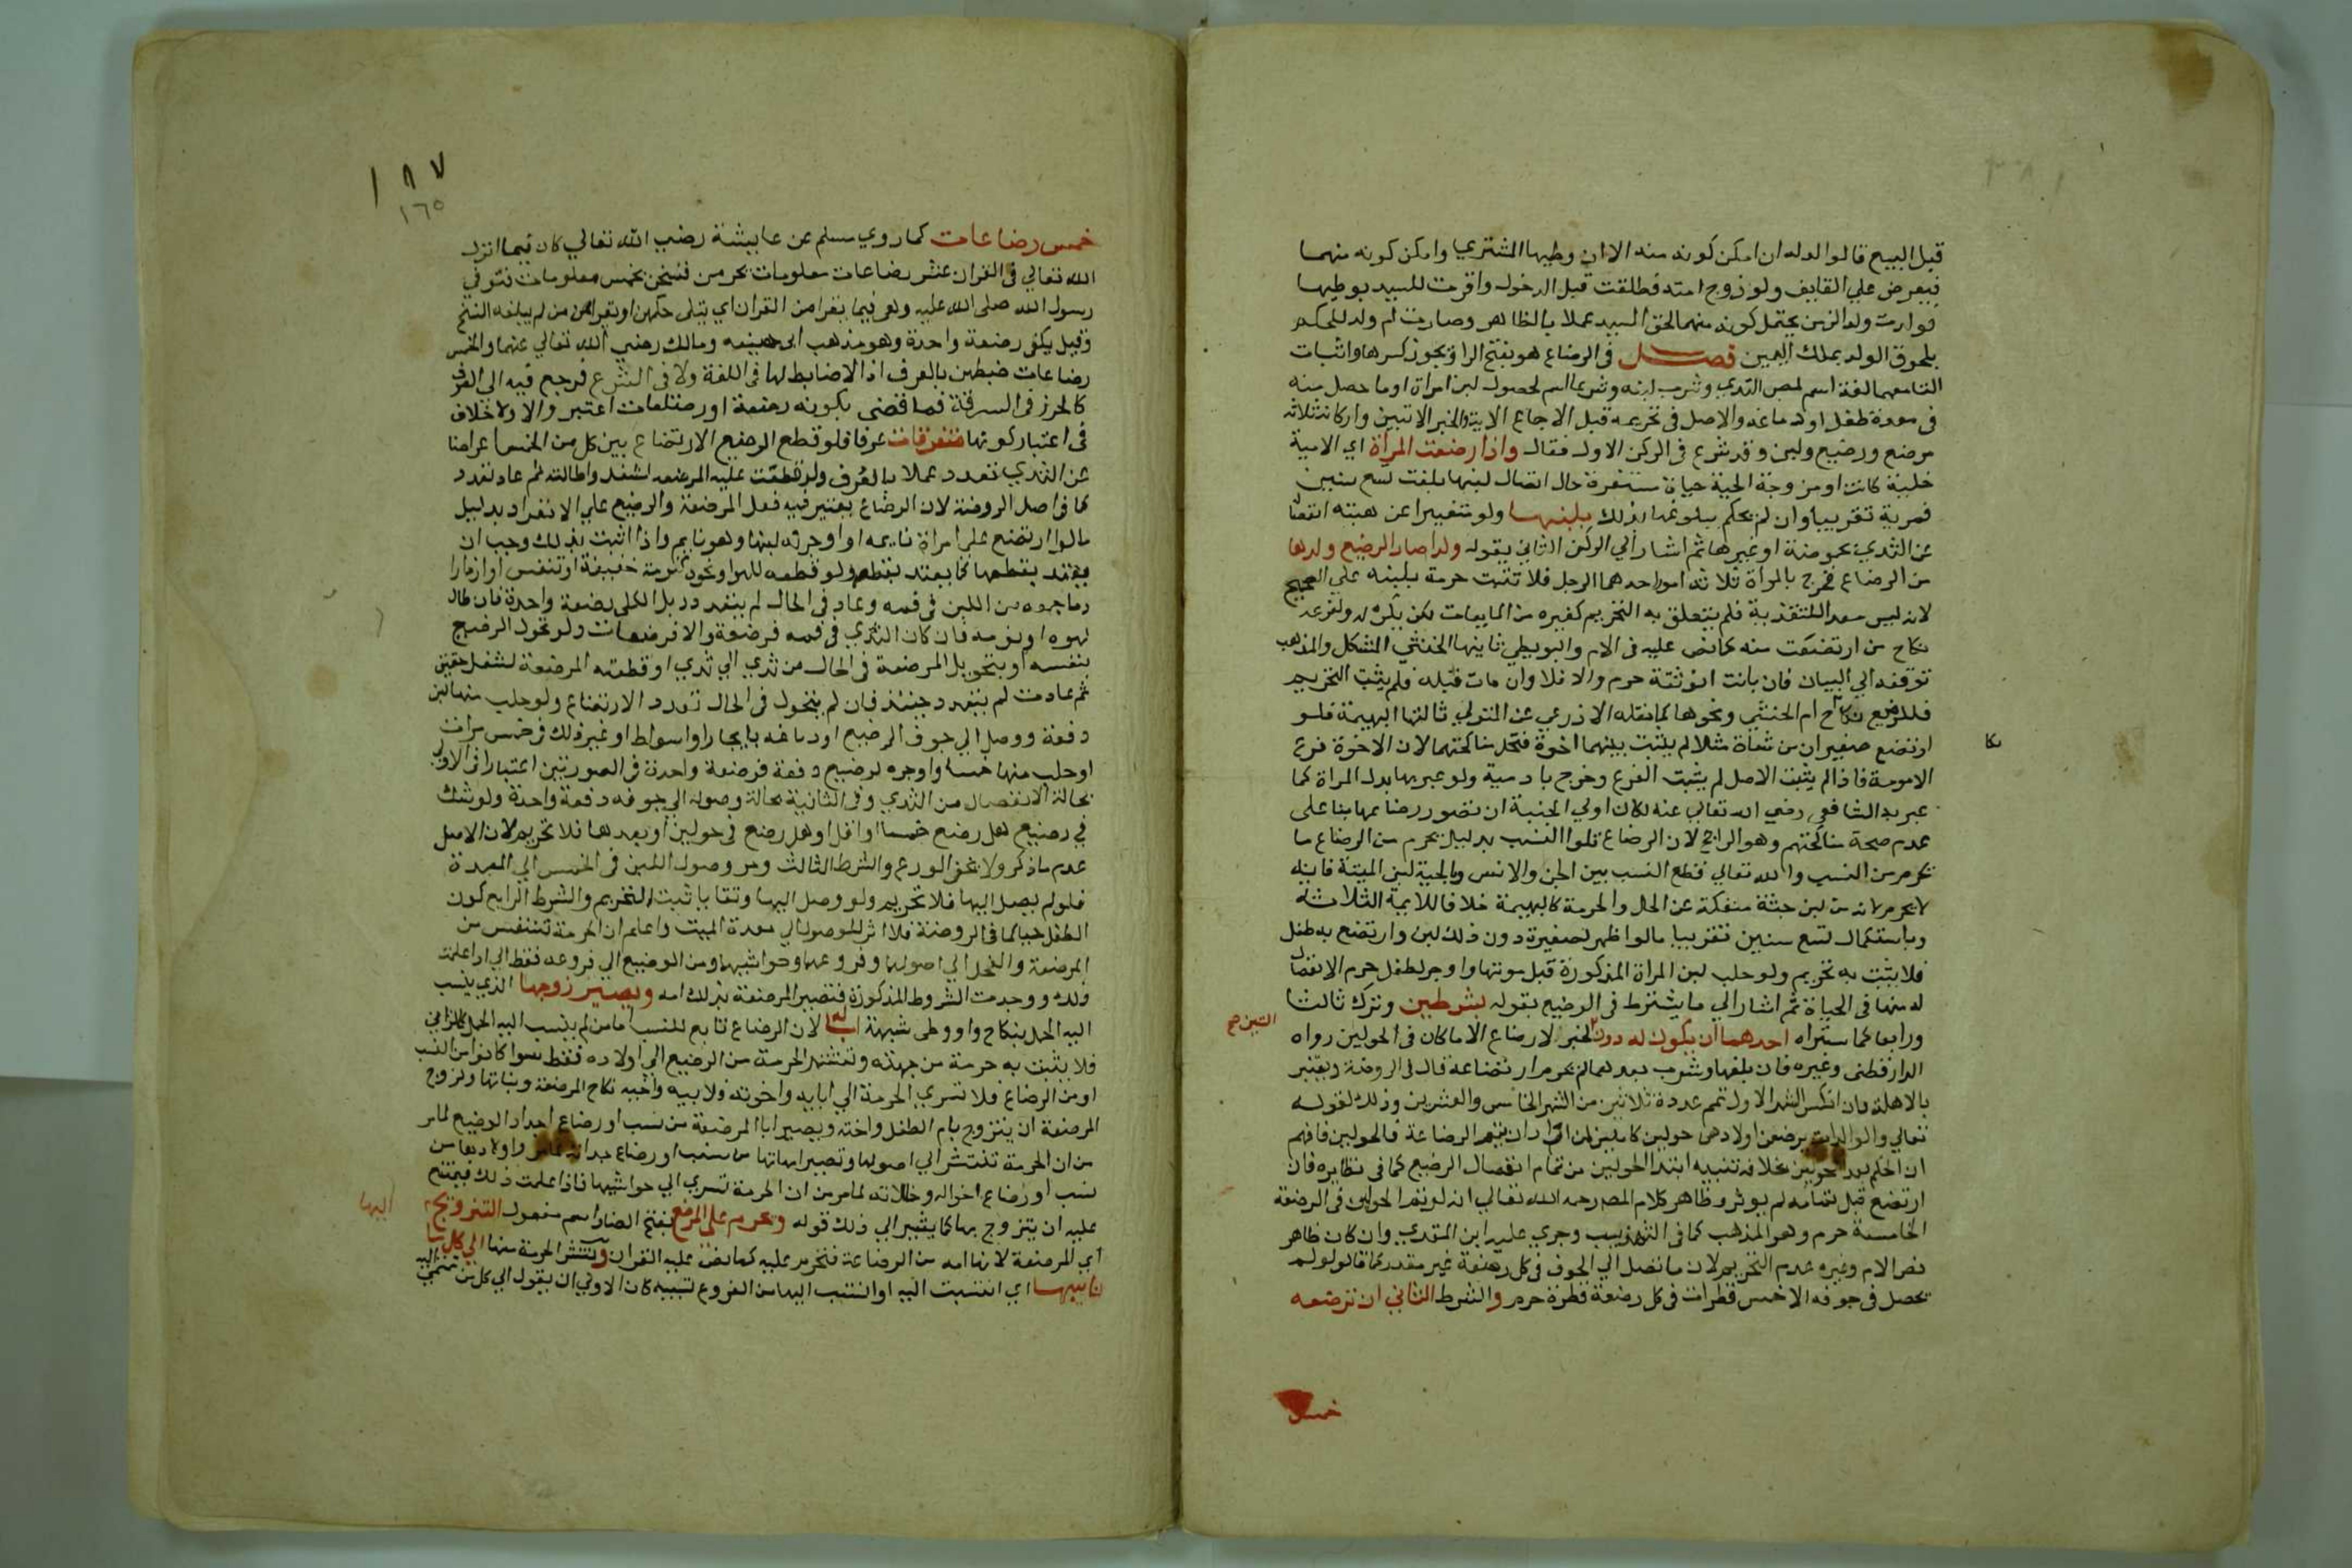 قبل البيع قالوا لوله ان امكن كونه منه الا ان وطيها المشتري وامكن كونه منهما
فيعرض علي القايف ولو زوج امته فطلقت قبل الدخول واقرت للسيد بوطيها
فولدت ولدا لزمن يحتمل كونه منهما لحق السيد عملا بالظاهر وصارت ام ولد للحكم
بلحوق الولد بملك اليمين فصل في الرضاع هو بفتح الرا ويجوز كسرها واثبات
التا معهما لغة اسم لمص الثدي وشرب لبنه وشرعا اسم لحصول لبن امراة او ما حصل منه
في معدة طفل او دماغه والاصل في تحريمه قبل الاجماع الاية والخبر الاتيين واركانه ثلاثة
مرضع ورضيع ولبن وقد شرع في الركن الاول فقال واذا ارضعت المراة اي الادمية
خلية كانت او مزوجة الحية حياة مستقرة حال انفصال لبنها بلغت تسع سنين
قمرية تقريبا وان لم يحكم ببلوغها بذلك بلبنها ولو متغيرا عن هيئته انفصل
عن الثدي بحموضة او غيرها ثم اشار الي الركن الثاني بقوله ولدا صار الرضيع ولدها
من الرضاع فخرج بالمراة ثلاثة امور احدهما الرجل فلا تثبت حرمة بلبنه علي الصحيح
لانه ليس معدا للتغذية فلم يتعلق به التحريم كغيره من المايعات لكن يكره له ولفرعه
نكاح من ارتضعت منه كما نص عليه في الام والبويطي ثانيها الخنثي المشكل والمذهب
توقفه الي البيان فان بانت انوثته حرم والا فلا وان مات قبله فلم يثبت التحريم
فللرضيع نكاح ام الخنثي ونحوها كما نقله الاذرعي عن المتولي ثالثها البهيمة فلو
ارتضع صغيران من شاة مثلا لم يثبت بينهما اخوة فتحل مناكحتهما لان الاخوة فرع
الامومة فاذا لم يثبت الاصل لم يثبت الفرع وخرج بادمية ولو عبر بها بدل المراة كما
عبر به الشافعي رضي الله تعالي عنه لكان اولي الجنية ان تصور رضاعها بنا علي
عدم صحة مناكحتهم وهو الراجح لان الرضاع تلوا النسب بدليل يحرم من الرضاع ما
يحرم من النسب والله تعالي قطع النسب بين الجن والانس وبالحية لبن الميتة فانه
لا يحرم لانه من لبن جثة منفكة عن الحل والحرمة كالبهيمة خلافا للايمة الثلاثة
وباستكمال تسع سنين تقريبا ما لو ظهر لصغيرة دون ذلك لبن وارتضع به طفل
فلا يثبت به تحريم ولو حلب لبن المراة المذكورة قبل موتها واوجر لطفل حرم لانفصال
له منها في الحياة ثم اشار الي ما يشترط في الرضيع بقوله بشرطين وترك ثالثا
ورابعا كما ستراه احدهما ان يكون له دون لخبر لا رضاع الا ما كان في الحولين رواه
السنتين صح
الدارقطني وغيره فان بلغها وشرب بعدهما لم يحرم ارتضاعه قال في الروضة ويعتبر
بالاهلة فان انكسر الشهر الاول تمم عدده ثلاثين من الشهر الخامس والعشرين وذلك لقوله
تعالي والوالدات يرضعن اولادهن حولين كاملين لمن اراد ان يتم الرضاعة فالحولين فافهم
ان الحكم بعد الحولين بخلافه تنبيه ابتدا الحولين من تمام انفصال الرضيع كما في نظايره فان
ارتضع قبل تمامه لم يوثر وظاهر كلام المص رحمه الله تعالي انه لو تم الحولين في الرضعة
الخامسة حرم وهو المذهب كما في التهذيب وجري عليه ابن المقري وان كان ظاهر
نص الام وغيره عدم التحريم لان ما تصل الي الجوف في كل رضعة غير مقدر كما قالوا لو لم
يحصل في جوفه الا خمس قطرات في كل رضعة قطرة حرم والشرط الثاني ان ترضعه
خمس
١٩٧
١٦٥
خمس رضاعات كما روي مسلم عن عايشة رضي الله تعالي كان فيما انزل
الله تعالي في القران عشر رضاعات معلومات يحرمن فنسخن بخمس معلومات فتوفي
رسول الله صلي الله عليه وهي فيما يقرا من القران اي يتلي حكمهن او يقراهن من لم يبلغه النسخ
وقيل يكفي رضعة واحدة وهو مذهب ابي حنيفة ومالك رضي الله تعالي عنهما والخمس
رضاعات ضبطهن بالعرف اذ لا ضابط لها في اللغة ولا في الشرع فرجع فيه الي العرف
كالحرز في السرقة فما قضي بكونه رضعة او رضعات اعتبر والا ولا خلاف
في اعتبار كونها متفرقات عرفا فلو قطع الرضيع الارتضاع بين كل من الخمس اعراضا
عن الثدي تعدد عملا بالعرف ولو قطعت عليه المرضعه لشغل واطالته ثم عاد تعدد
كما في اصل الروضة لان الرضاع يعتبر فيه فعل المرضعة والرضيع علي الانفراد بدليل
ما لو ارتضع علي امراة نايمه او اوجرته لبنها وهو نايم واذا اثبت بذلك وجب ان
يعتد بقطعها كما يعتد بقطعه ولو قطعه للهو او نحوه كنومة خفيفة او تنفس او ازدراد
ما جمعه من اللبن في فمه وعاد في الحال لم يتعدد بل الكل رضعة واحدة فان طال
لهوه او نومه فان كان الثدي في فمه فرضعة والا فرضعات ولو تحول الرضيع
بنفسه او بتحويل المرضعة في الحال من ثدي الي ثدي او قطعته المرضعة لشغل خفيف
ثم عادت لم يتعدد حينئذ فان لم يتحول في الحال تعدد الارتضاع ولو حلب منها لبن
دفعة ووصل الي جوف الرضيع او دماغه بايجار او اسعاط او غير ذلك في خمس مرات
او حلب منها خمسا واوجره لرضيع دفعة فرضعة واحدة في الصورتين اعتبارا في الاولي
بحالة الانفصال من الثدي وفي الثانية بحالة وصوله الي جوفه دفعة واحدة ولو شك
في رضيع هل رضع خمسا او اقل او هل رضع في حولين او بعدهما فلا تحريم لان الاصل
عدم ما ذكر ولا يخفي الورع والشرط الثالث وهو وصول اللبن في الخمس الي المعدة
فلو لم يصل اليها فلا تحريم ولو وصل اليها وتقايا ثبت التحريم والشرط الرابع كون
الطفل حيا كما في الروضة فلا اثر للوصول الي معدة الميت واعلم ان الحرمة تنتشر من
المرضعة والفحل الي اصولهما وفروعهما وحواشيهما ومن الرضيع الي فروعه فقط الي اذا علمت
ذلك ووجدت الشروط المذكورة فتصير المرضعة بذلك امه ويصير زوجها الذي ينسب
اليه الحمل بنكاح او وطي شبهة ابا له لان الرضاع تابع للنسب اما من لم ينسب اليه الحمل كالزاني
فلا يثبت به حرمة من جهته وتنتشر الحرمة من الرضيع الي اولاده فقط سوا كانوا من النسب
او من الرضاع فلا تسري الحرمة الي ابايه واخوته فلابيه واخيه نكاح المرضعة وبناتها ولزوج
المرضعة ان يتزوج بام الطفل واخته ويصير ابا المرضعة من نسب او رضاع اجداد الرضيع لما مر
من ان الحرمة تنتشر الي اصولها وتصير امهاتها من نسب او رضاع جداته واولادها من
نسب او رضاع اخواله وخالاته لما مر من ان الحرمة تسري الي حواشيها فاذا علمت ذلك فيمتنع
عليه ان يتزوج بها كما يشير الي ذلك قوله ويحرم علي المرضع بفتح الضاد اسم مفعول التزويج
اليها
اي المرضعة لانها امه من الرضاعة فتحرم عليه كما نص عليه القران وتنتشر الحرمة منها الي كل من
ناسبها اي انتسبت اليه او انتسب اليها من الفروع تنبيه كان الاولي ان يقول الي كل من تنتمي اليه